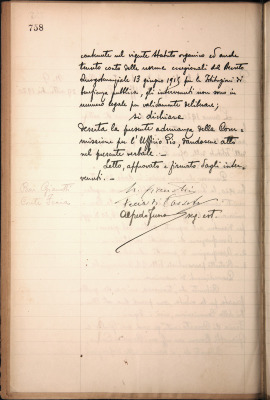 758
contenute nel vigente Statuto organico ed anche
tenuto conto delle norme eccezionali del Decreto
Luogotenenziale 13 giugno 1915 per le Istituzioni di
beneficenza pubblica, gli intervenuti non sono in
numero legale per validamente deliberare;
si dichiara
deserta la presente adunanza della Com=
missione per l'Ufficio Pio, dandosene atto
nel presente verbale. -
Letto, approvato e firmato dagli inter-
venuti. -
Alfredo